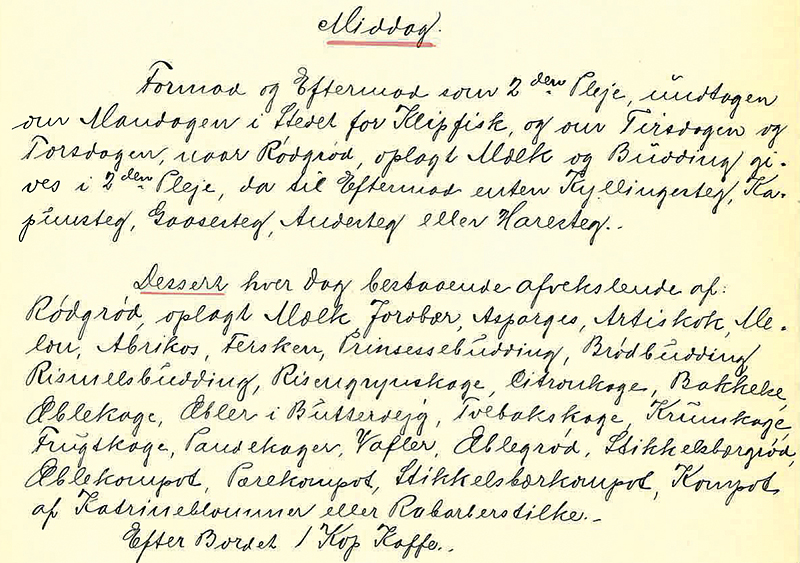 Middag.
Formad og Eftermad som 2den Pleje, undtagen
om Mandagen i Stedet for Klipfisk, og om Tirsdagen og
Torsdagen, naar Rødgrød, oplagt Mælk og Budding gi-
ves i 2den Pleje, da til Eftermad enten Kyllingesteg, Ka-
punsteg, Gaasesteg, Andesteg eller Haresteg..
Dessert hver Dag bestaaende afvekslende af:
Rødgrød, oplagt Mælk Jordbær, Asparges, Artiskok, Me-
lon, Abrikos, Fersken, Prinsessebudding, Brødbudding
Rismelsbudding, Risengrynskage, Citronkage, Bakkelse,
Æblekage, Æbler i Butterdejg, Tvebakskage, Krumkage,
Frugtkage, Pandekager, Vafler, Æblegrød, Stikkelsbærgrød,
Æblekompot, Pærekompot, Stikkelsbærkompot, Kompot
af Katrineblommer eller Rabarberstilke..
Efter Bordet 1 Kop Kaffe..